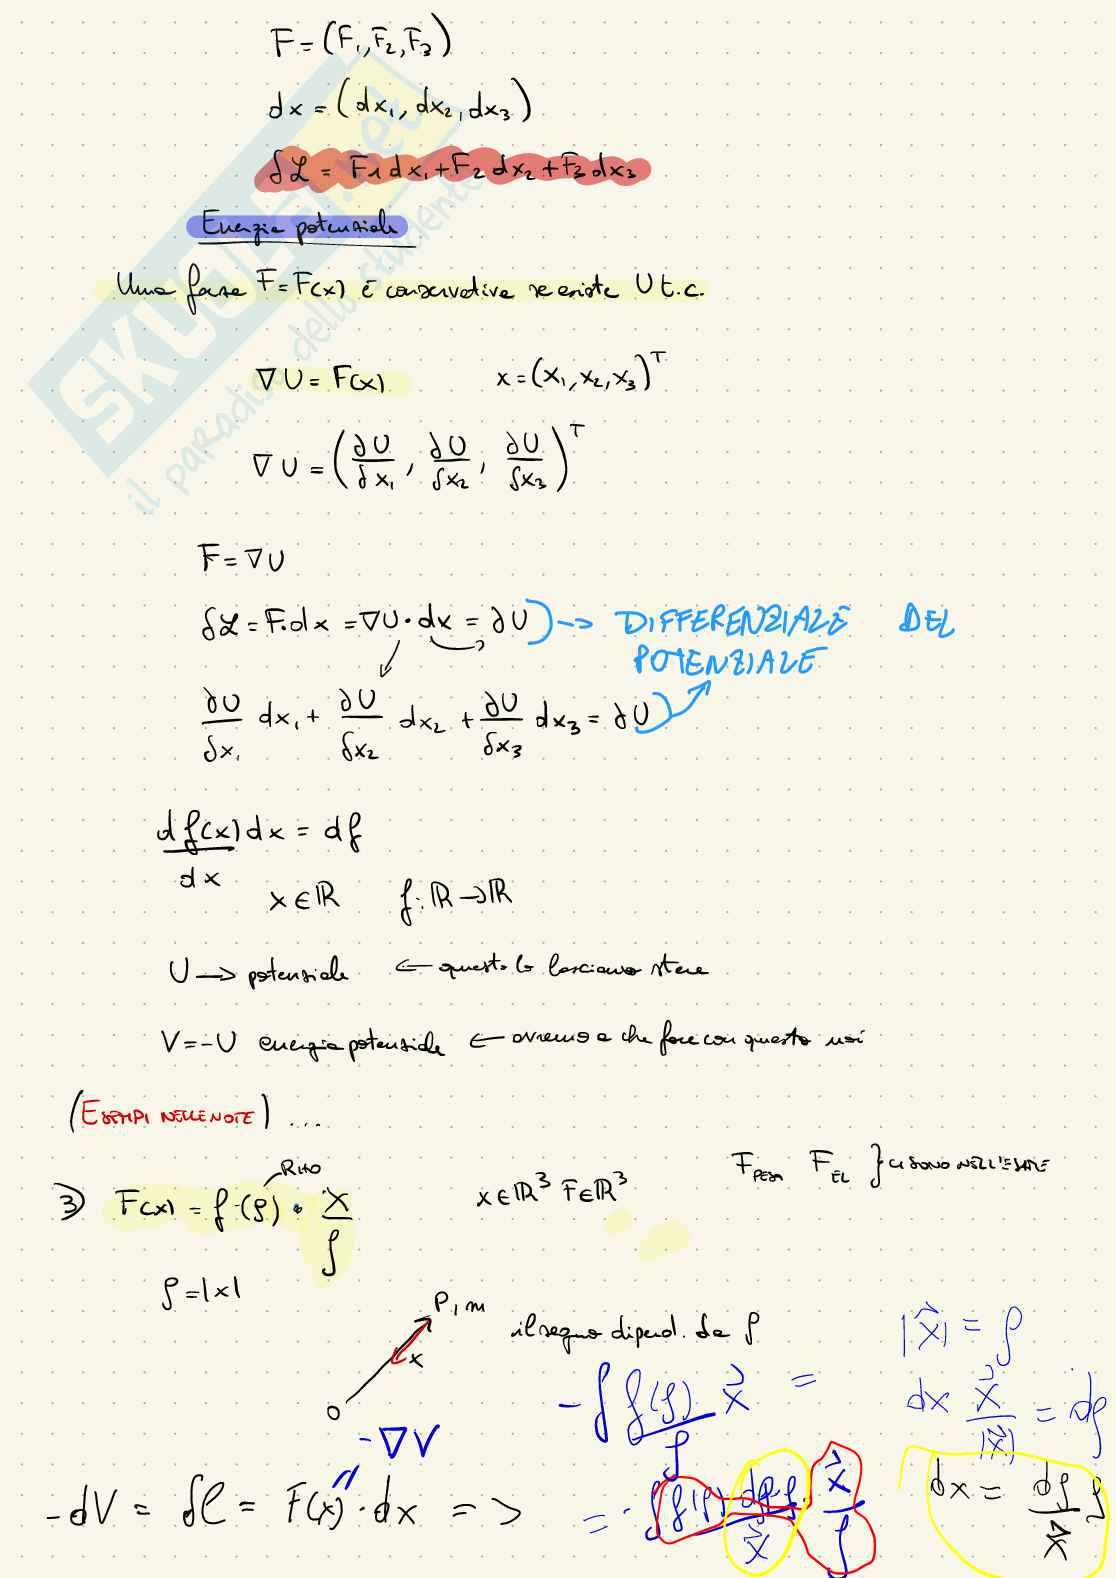 F = (F₁, F₂, F₃)
dx = (dx₁, dx₂, dx₃)
δL = F1 dx₁ + F₂ dx₂ + F₃ dx₃
Energia potenziale
Una forza F = F(x) è conservativa se esiste U t.c.
∇U = F(x) x = (x₁, x₂, x₃)ᵀ
∇U = (∂U/δx₁, ∂U/δx₂, ∂U/δx₃)ᵀ
F = ∇U
δL = F·dx = ∇U·dx = ∂U ) → DIFFERENZIALE DEL
POTENZIALE
∂U/δx₁ dx₁ + ∂U/δx₂ dx₂ + ∂U/δx₃ dx₃ = ∂U
df(x)/dx dx = df
x ∈ ℝ f: ℝ → ℝ
U → potenziale ← questo lo lasciamo stare
V = -U energia potenziale ← avremo a che fare con questo noi
(ESEMPI NELLE NOTE) ...
RHO
F PESO F EL } CI SONO NELL'ESAME
3) F(x) = f(ρ) · x/ρ x ∈ ℝ³ F ∈ ℝ³
ρ = |x|
P, m
x
O
il segno dipend. da f
|x⃗| = ρ
-∫ f(ρ)/ρ x⃗ =
dx x⃗/|x⃗| = dρ
-∇V
-dV = δL = F(x) · dx =>
= -∫ f(ρ) dρ·ρ/x⃗ · x⃗/ρ
dx = dρ/x⃗ ρ
SKUOLA.net
il paradiso dello studente